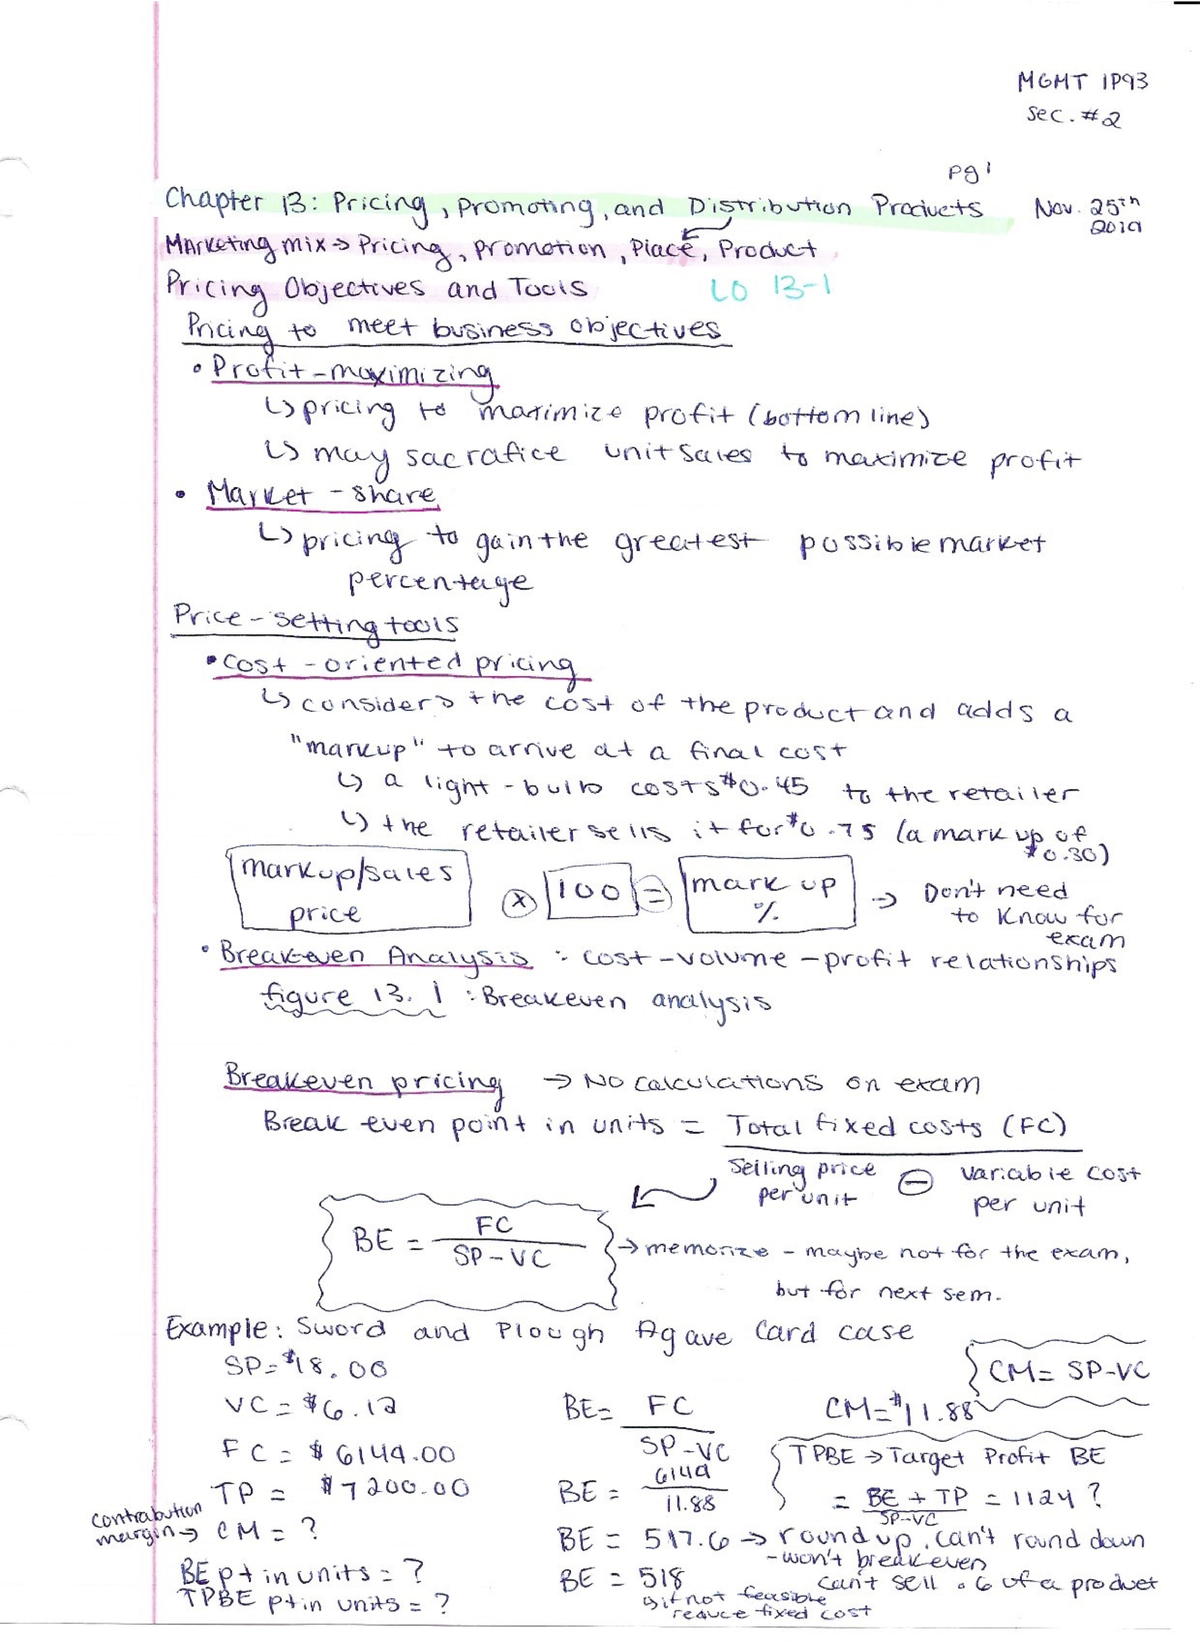 MGMT 1P93
sec. #2
pg 1
Chapter 13: Pricing, Promoting, and Distribution Products
Nov. 25th
2019
Marketing mix → Pricing, Promotion, Place, Product
Pricing Objectives and Tools LO 13-1
Pricing to meet business objectives
• Profit-maximizing
↳ pricing to maximize profit (bottom line)
↳ may sacrafice unit sales to maximize profit
• Market-share
↳ pricing to gain the greatest possible market
percentage
Price-setting tools
• Cost-oriented pricing
↳ considers the cost of the product and adds a
"markup" to arrive at a final cost
↳ a light-bulb costs $0.45 to the retailer
↳ the retailer sells it for $0.75 (a mark up of
$0.30)
markup/sales
price
× 100 = mark up
%
→ Don't need
to know for
exam
• Breakeven Analysis : cost-volume-profit relationships
figure 13.1 : Breakeven analysis
Breakeven pricing → No calculations on exam
Break even point in units = Total fixed costs (FC)
Selling price
per unit
− variable cost
per unit
BE = FC
SP-VC
→ memorize - maybe not for the exam,
but for next sem.
Example: Sword and Plough Agave Card case
SP = $18.00
VC = $6.12
FC = $6149.00
TP = $7200.00
contrabution
margin → CM = ?
BE pt in units = ?
TPBE pt in units = ?
BE = FC
SP-VC
BE = 6149
11.88
BE = 517.6 → round up, can't round down
- won't breakeven
can't sell .6 of a product
BE = 518
↳ if not feasible
reduce fixed cost
CM = SP-VC
CM = $11.88
TPBE → Target Profit BE
= BE + TP = 1124 ?
SP-VC